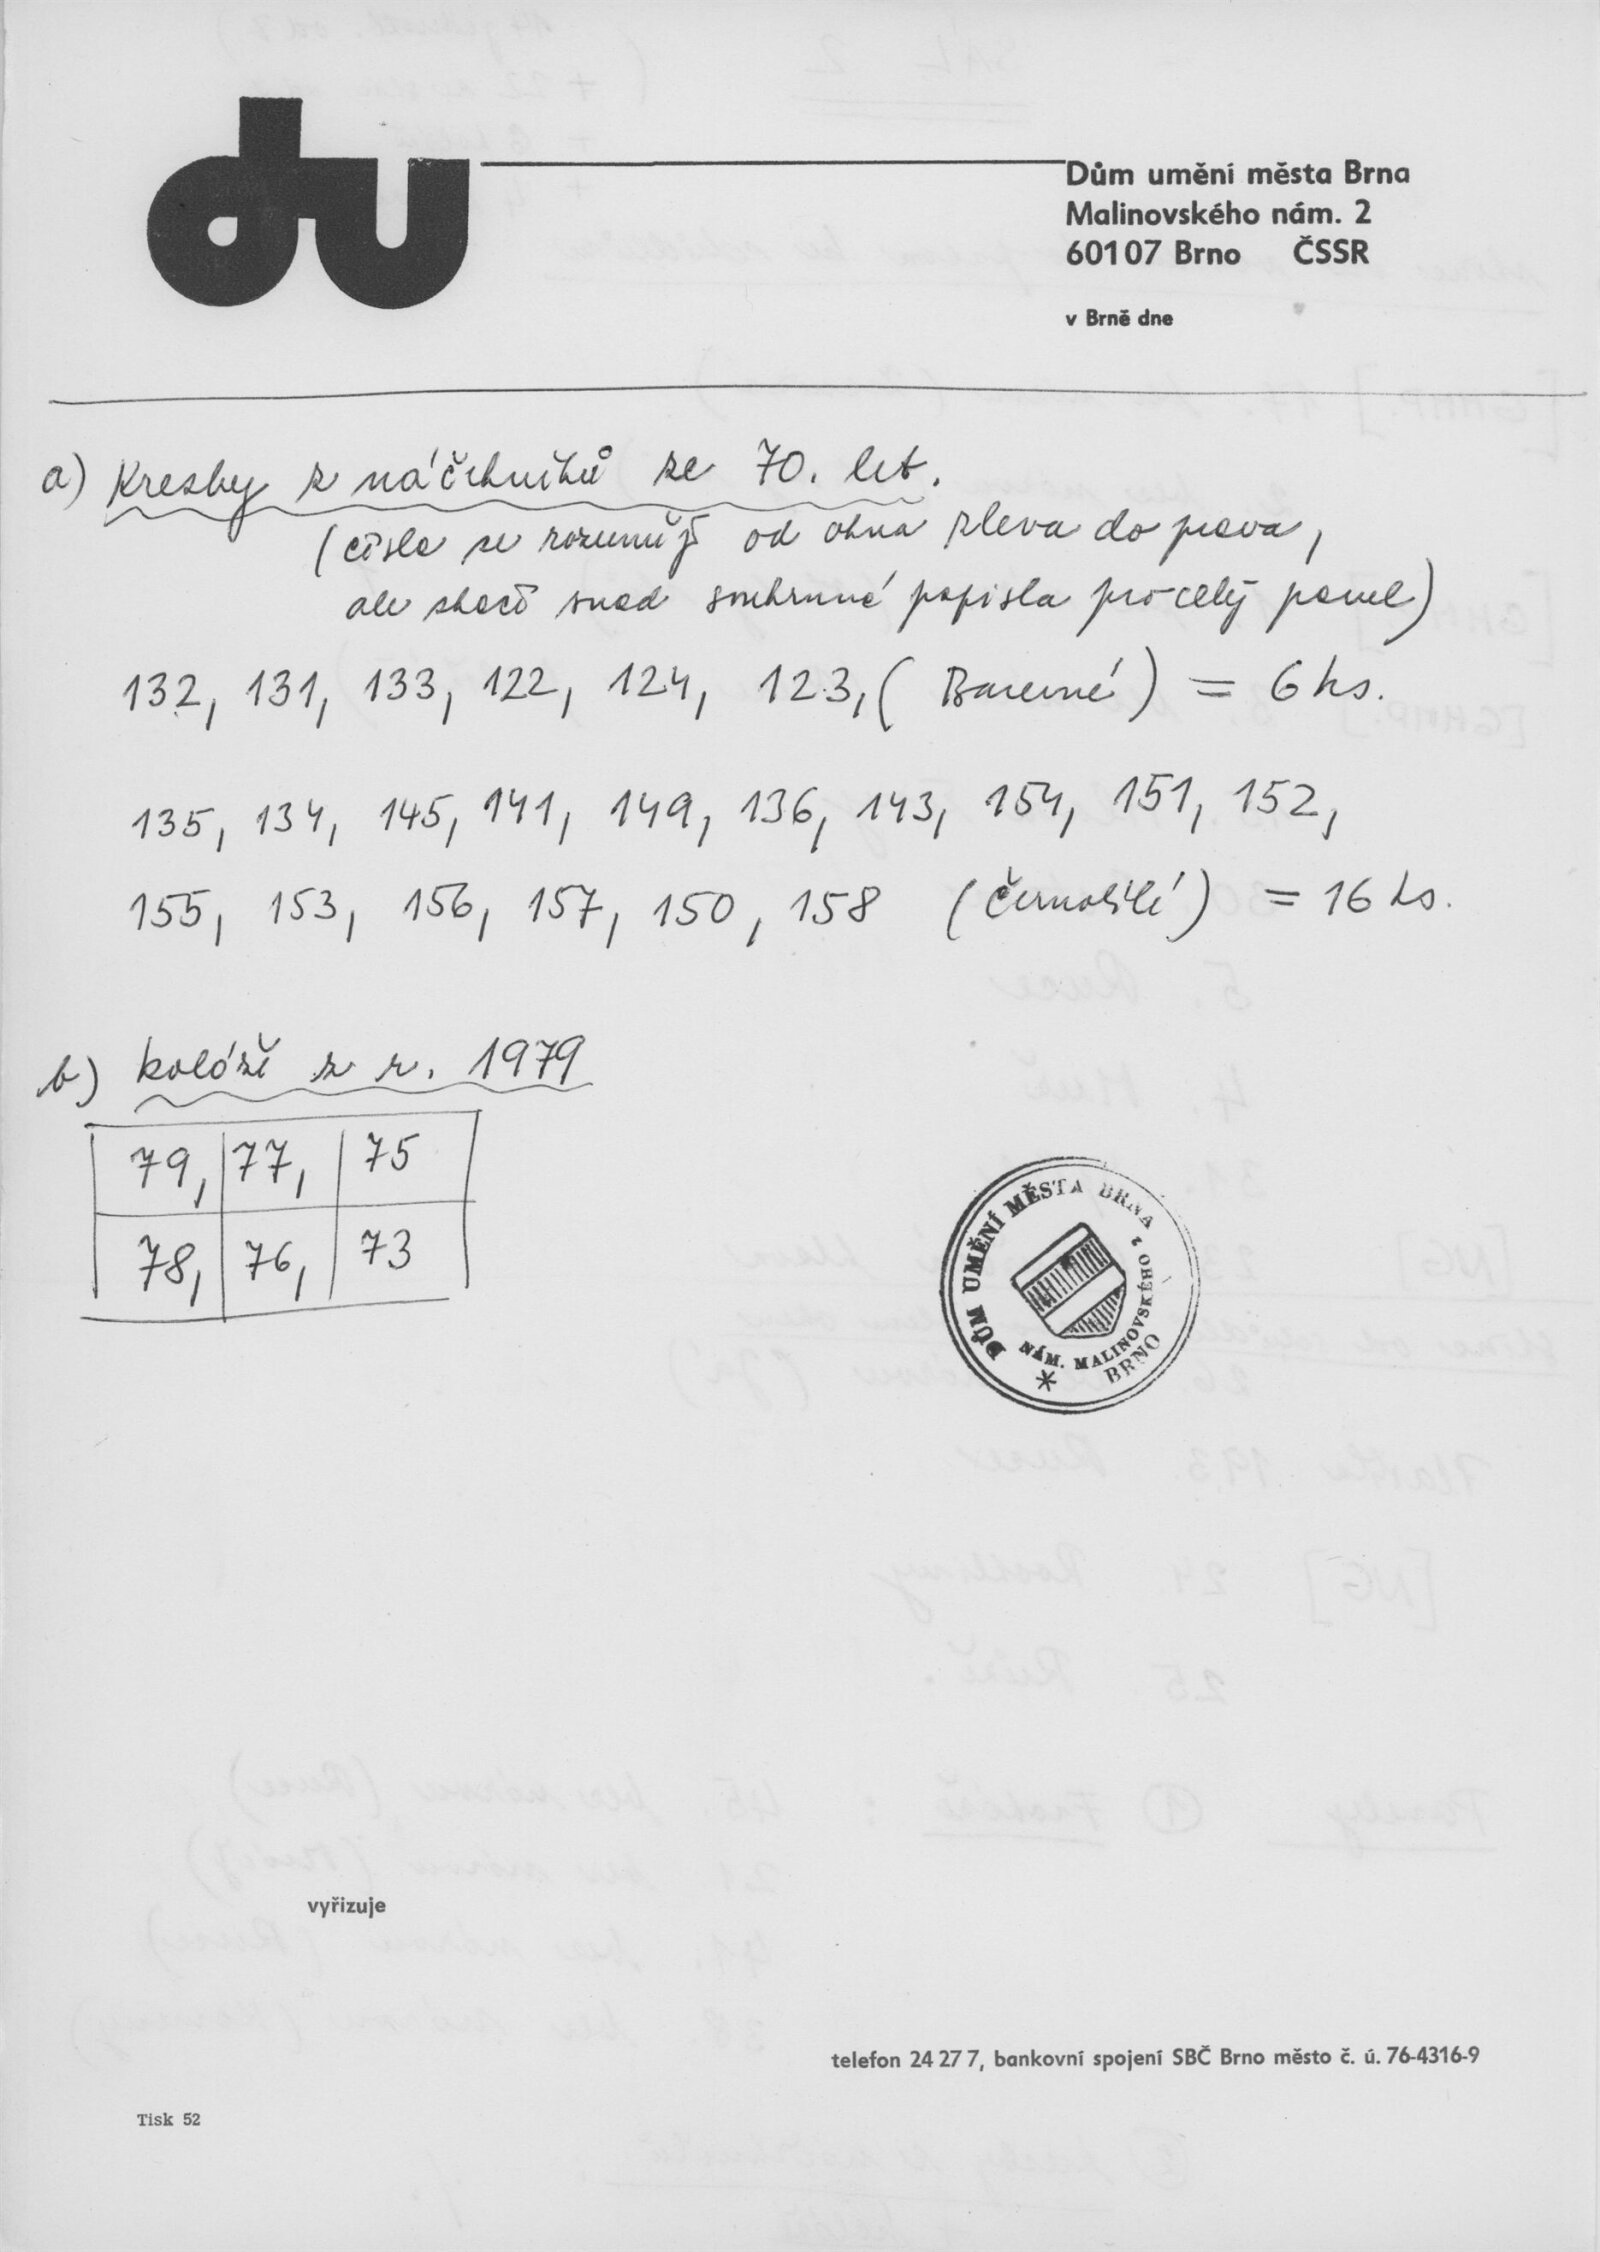 du
Dům umění města Brna
Malinovského nám. 2
60107 Brno ČSSR
v Brně dne
a) Kresby z náčrtníků ze 70. let.
(čísla se rozumějí od okna zleva do prava,
ale stačí snad souhrnná popiska pro celý panel)
132, 131, 133, 122, 124, 123, (Barevné) = 6 ks.
135, 134, 145, 141, 149, 136, 143, 154, 151, 152,
155, 153, 156, 157, 150, 158 (černobílé) = 16 ks.
b) koláže z r. 1979
79, 77, 75
78, 76, 73
DŮM UMĚNÍ MĚSTA BRNA
NÁM. MALINOVSKÉHO 2
BRNO
*
vyřizuje
telefon 24 27 7, bankovní spojení SBČ Brno město č. ú. 76-4316-9
Tisk 52